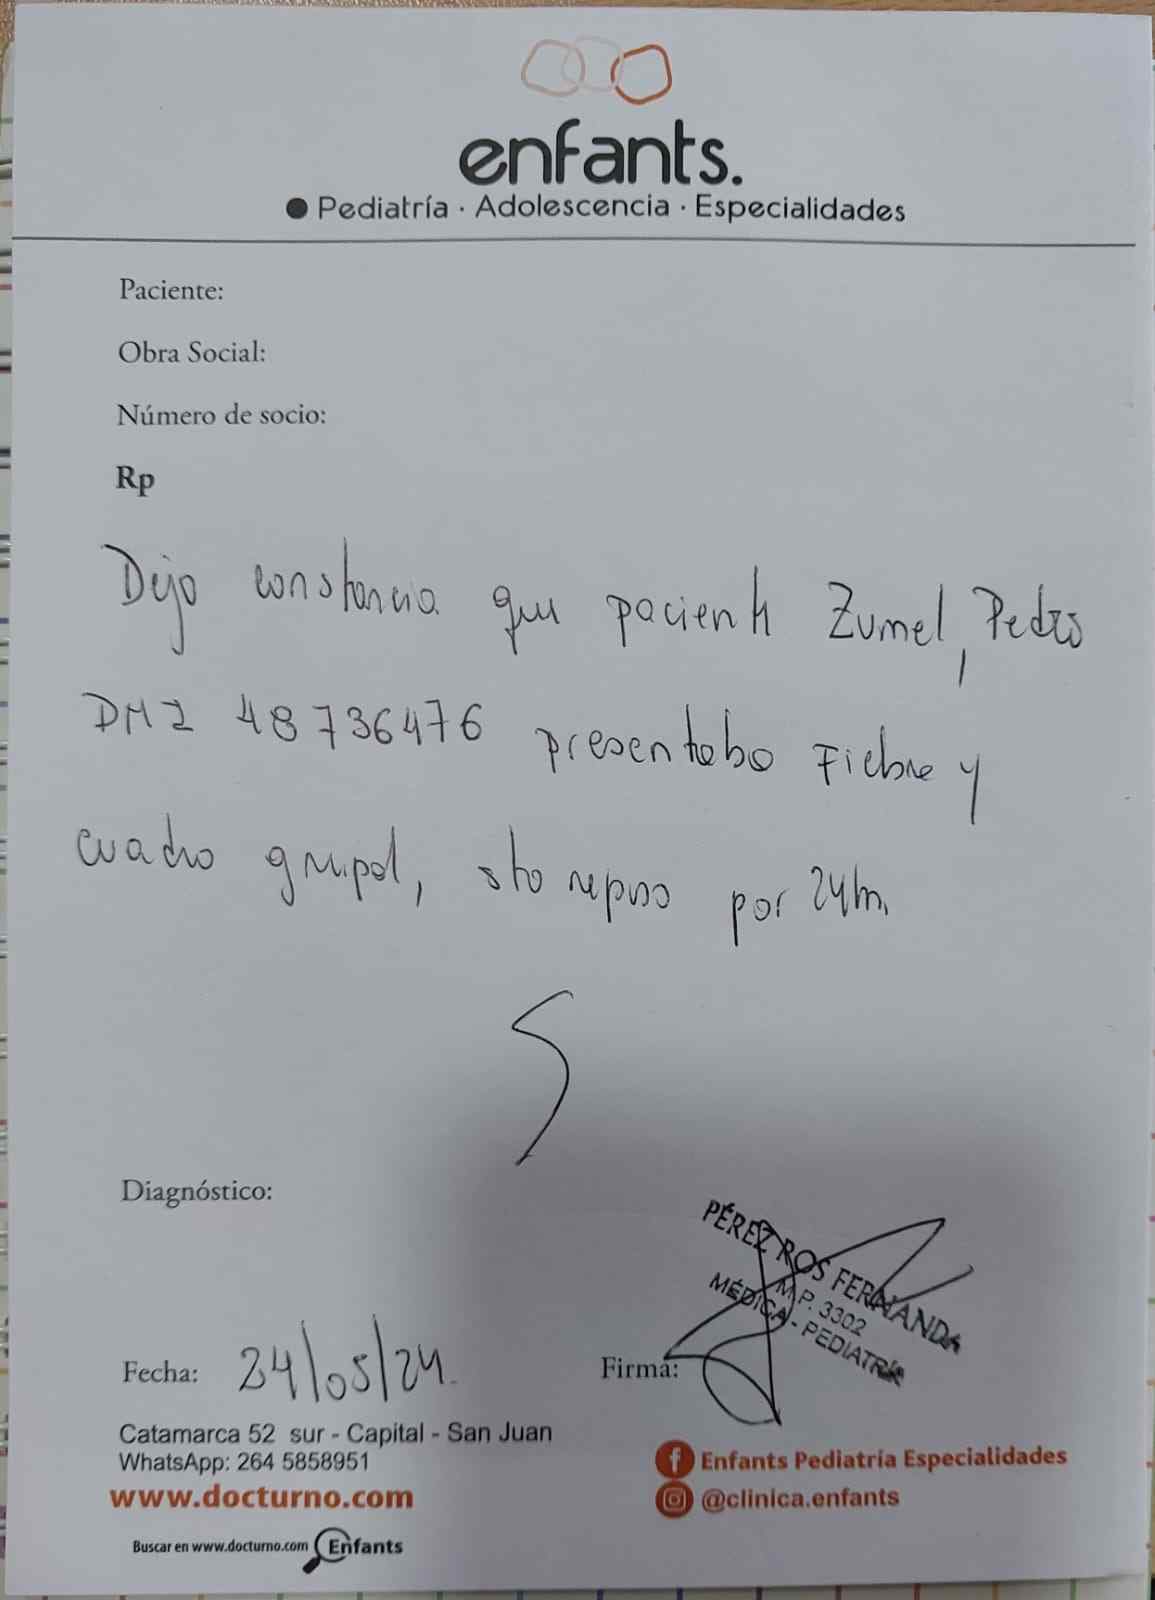 enfants.
Pediatría · Adolescencia · Especialidades
Paciente:
Obra Social:
Número de socio:
Rp
Dejo constancia que paciente Zumel, Pedro
DNI 48736476 presentaba Fiebre y
cuadro gripal, sto reposo por 24hs.
Diagnóstico:
PÉREZ ROS FERNANDA
M.P. 3302
MÉDICA - PEDIATRÍA
Fecha: 24/05/24.
Firma:
Catamarca 52 sur - Capital - San Juan
WhatsApp: 264 5858951
www.docturno.com
Buscar en www.docturno.com Enfants
Enfants Pediatría Especialidades
@clinica.enfants